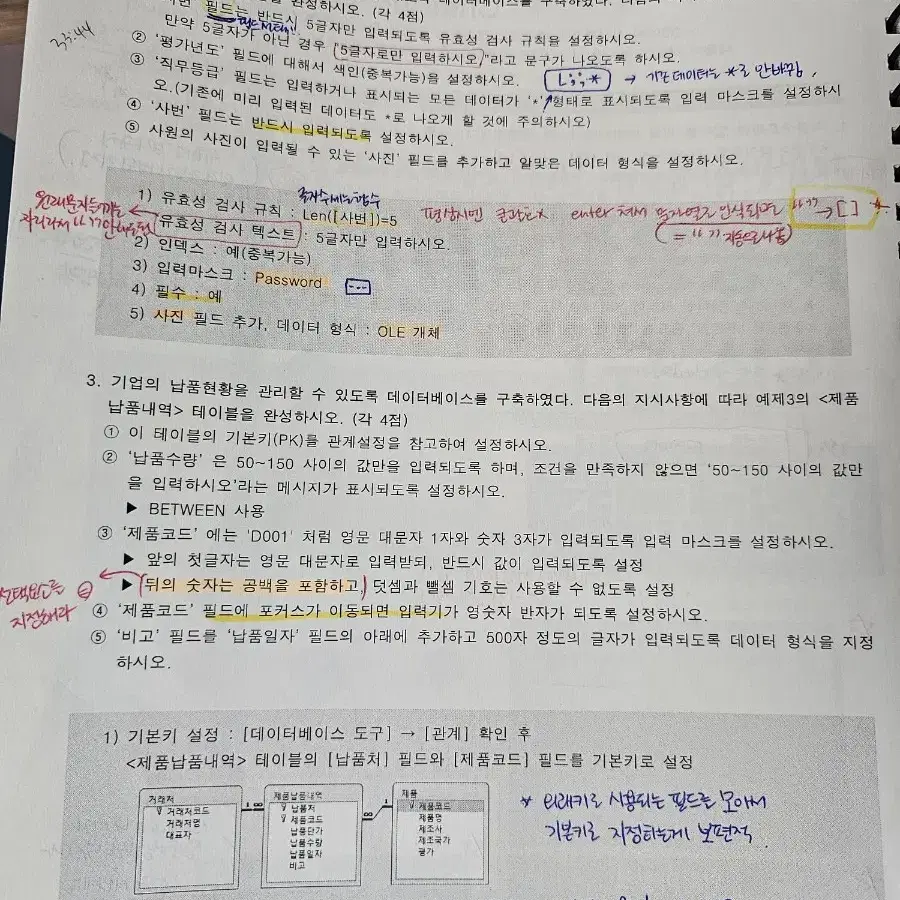 필드는 반드시 5글자만 입력되도록 유효성 검사 규칙을 설정하시오.
33:44
만약 5글자가 아닌 경우 "5글자로만 입력하시오."라고 문구가 나오도록 하시오.
② '평가년도' 필드에 대해서 색인(중복가능)을 설정하시오.
L;;* → 기존 데이터는 *로 안바뀜,
③ '직무등급' 필드는 입력하거나 표시되는 모든 데이터가 '*'형태로 표시되도록 입력 마스크를 설정하시
오.(기존에 미리 입력된 데이터도 *로 나오게 할 것에 주의하시오)
④ '사번' 필드는 반드시 입력되도록 설정하시오.
⑤ 사원의 사진이 입력될 수 있는 '사진' 필드를 추가하고 알맞은 데이터 형식을 설정하시오.
1) 유효성 검사 규칙 : Len([사번])=5
유효성 검사 텍스트 : 5글자만 입력하시오.
" " → [ ] *
2) 인덱스 : 예(중복가능)
3) 입력마스크 : Password
4) 필수 : 예
5) 사진 필드 추가, 데이터 형식 : OLE 개체
3. 기업의 납품현황을 관리할 수 있도록 데이터베이스를 구축하였다. 다음의 지시사항에 따라 예제3의 <제품
납품내역> 테이블을 완성하시오. (각 4점)
① 이 테이블의 기본키(PK)를 관계설정을 참고하여 설정하시오.
② '납품수량' 은 50~150 사이의 값만을 입력되도록 하며, 조건을 만족하지 않으면 '50~150 사이의 값만
을 입력하시오'라는 메시지가 표시되도록 설정하시오.
▶ BETWEEN 사용
③ '제품코드' 에는 'D001' 처럼 영문 대문자 1자와 숫자 3자가 입력되도록 입력 마스크를 설정하시오.
▶ 앞의 첫글자는 영문 대문자로 입력받되, 반드시 값이 입력되도록 설정
▶ 뒤의 숫자는 공백을 포함하고, 덧셈과 뺄셈 기호는 사용할 수 없도록 설정
지정해라
④ '제품코드' 필드에 포커스가 이동되면 입력기가 영숫자 반자가 되도록 설정하시오.
⑤ '비고' 필드를 '납품일자' 필드의 아래에 추가하고 500자 정도의 글자가 입력되도록 데이터 형식을 지정
하시오.
1) 기본키 설정 : [데이터베이스 도구] → [관계] 확인 후
<제품납품내역> 테이블의 [납품처] 필드와 [제품코드] 필드를 기본키로 설정
거래처
거래처코드
거래처명
대표자
1 ∞
제품납품내역
납품처
제품코드
납품단가
납품수량
납품일자
비고
∞ 1
제품
제품코드
제품명
제조사
제조국가
평가
* 외래키로 사용되는 필드를 모아서
기본키로 지정하는게 보편적